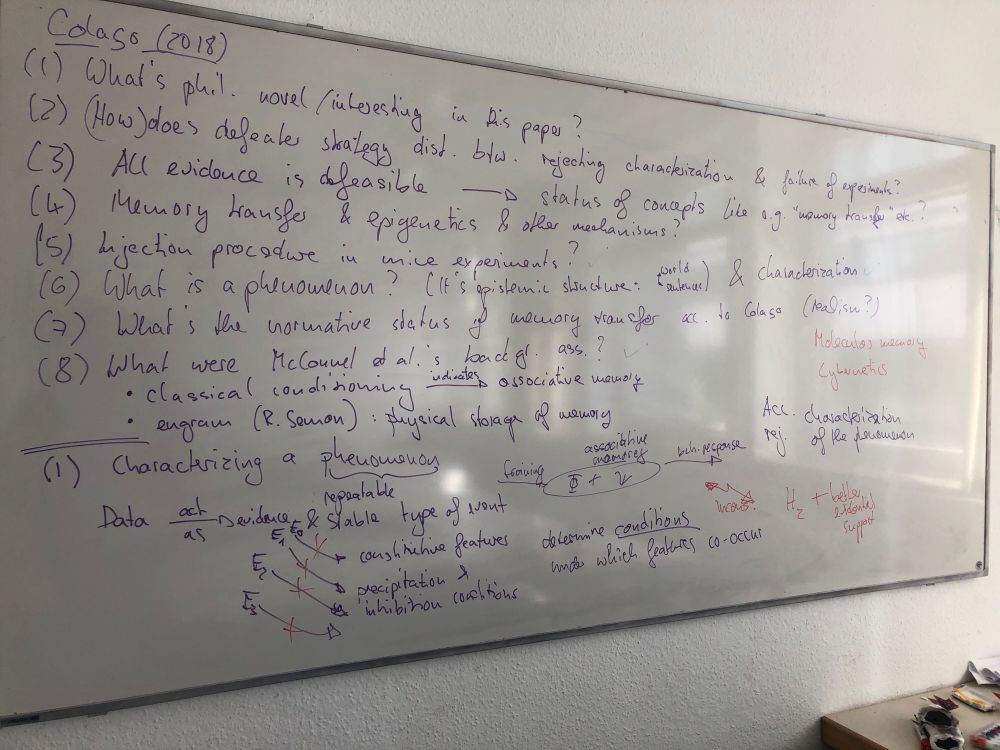 Colaço (2018)
(1) What's phil. novel/interesting in this paper?
(2) (How) does defeater strategy dist. btw. rejecting characterization & failure of experiments?
(3) All evidence is defeasible → status of concepts like e.g. "memory transfer" etc.?
(4) Memory transfer & epigenetics & other mechanisms?
(5) Injection procedure in mice experiments?
(6) What is a phenomenon? (It's epistemic structure: world sentences) & characterization
(7) What's the normative status of memory transfer acc. to Colaço (realism?)
(8) What were McConnel et al.'s backgr. ass.?
• classical conditioning indicates → associative memory
• engram (R. Semon): physical storage of memory
Molecular memory
Cybernetics
Acc. characterization
rej. of the phenomenon
(1) Characterizing a phenomenon
training associative memory beh. response
Φ + Ψ
repeatable
Data act as → evidence & stable type of event
E0
E1 constitutive features
E2 precipitation &
inhibition conditions
E3
determine conditions
under which features co-occur
incons.
H2 + better
evidential
support